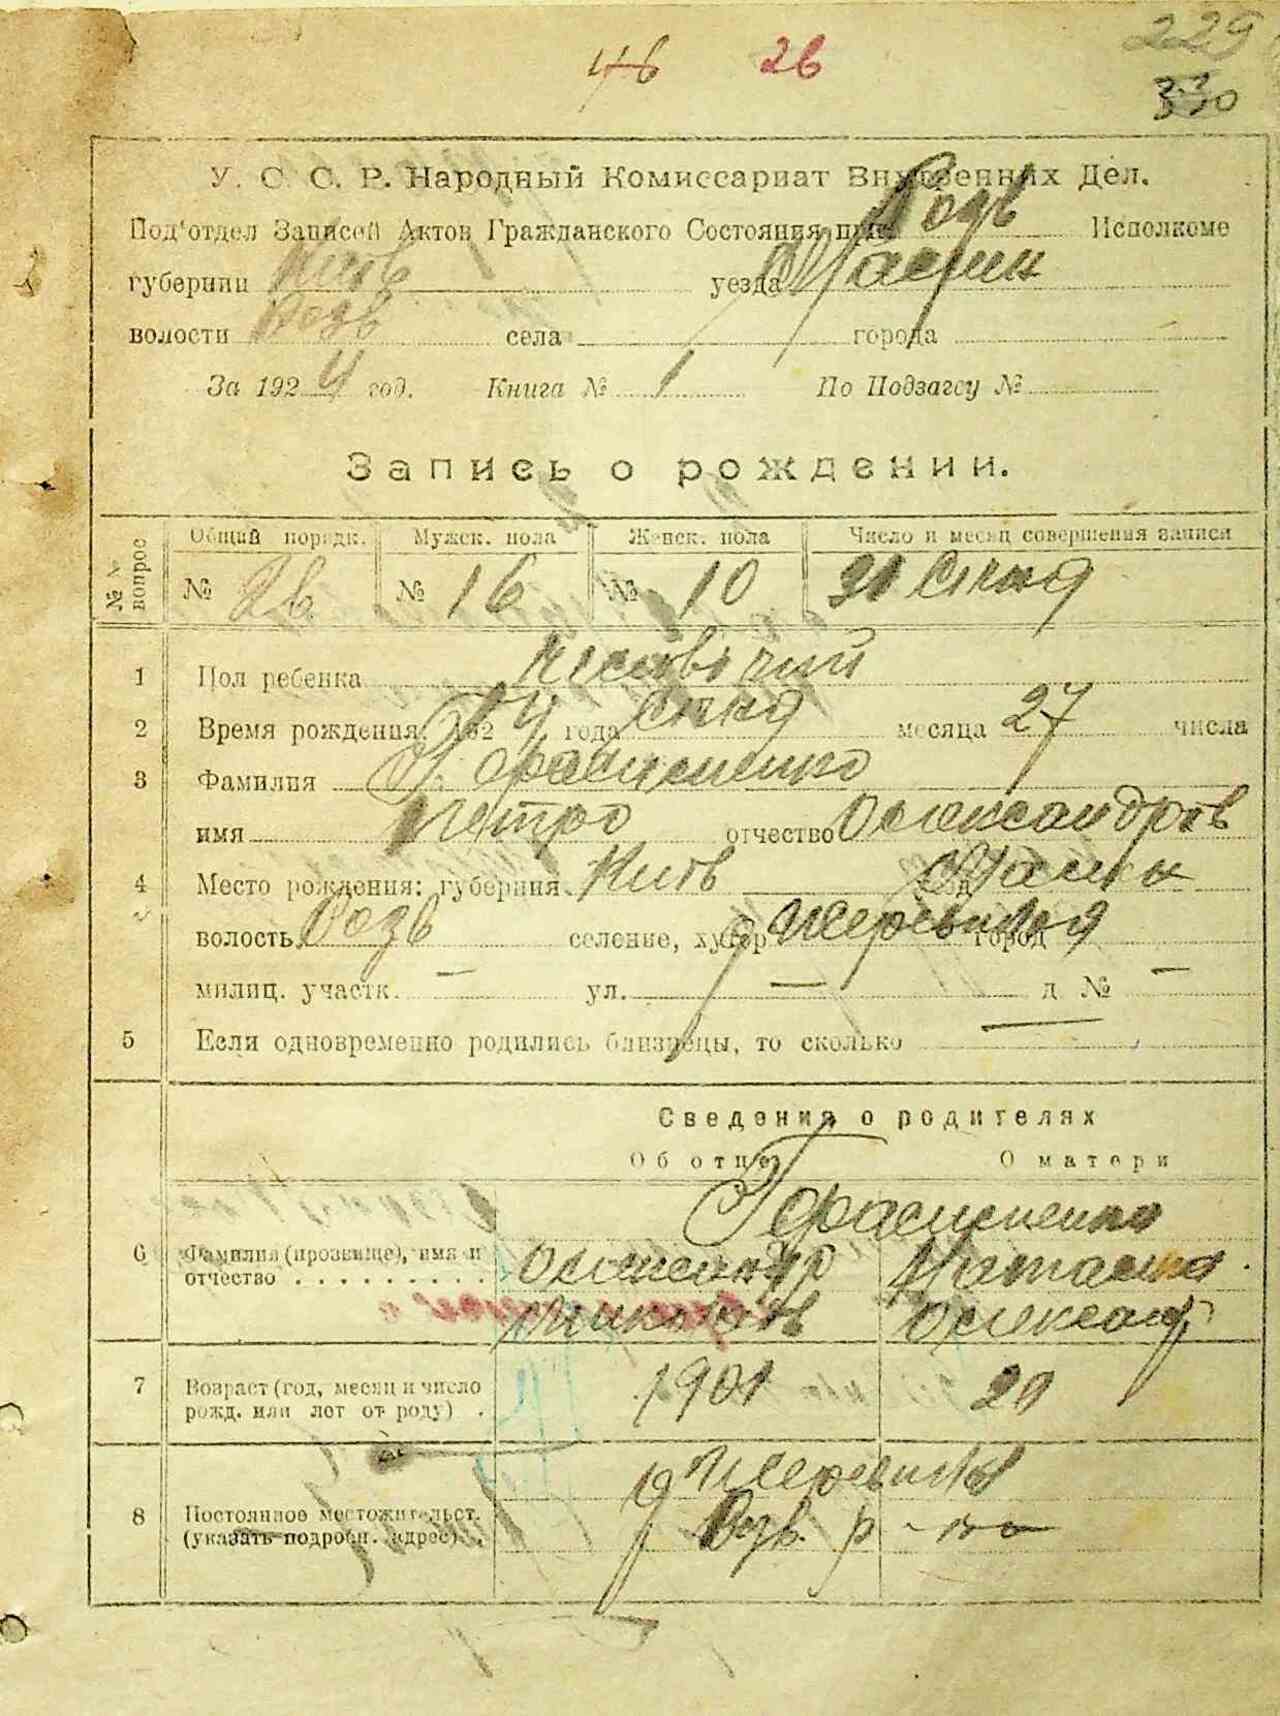 46 26
229
330
У. С. С. Р. Народный Комиссариат Внутренних Дел.
Под'отдел Записей Актов Гражданского Состояния при Розв Исполкоме
губернии Київ уезда
волости Розв села города
За 1924 год. Книга № 1 По Подзагсу №
Запись о рождении.
№№ вопрос Общий порядк. Мужск. пола Женск. пола Число и месяц совершения записи
№ 26 № 16 № 10 31 Січня
1 Пол ребенка чоловічий
2 Время рождения: 1924 года Січня месяца 27 числа
3 Фамилия Герасименко
имя Петро отчество Олександров
4 Место рождения: губерния Київ уезд
волость Розв селение, хутор город
милиц. участк. — ул. — д № —
5 Если одновременно родились близнецы, то сколько —
Сведения о родителях
Об отце О матери
Герасименко
6 Фамилия (прозвище), имя и Олександр Наталка
отчество . . . . . . . . . Олександ
7 Возраст (год, месяц и число 1901 20
рожд. или лет от роду) .
8 Постоянное местожительст.
(указать подробн. адрес) . Розв. р-ну